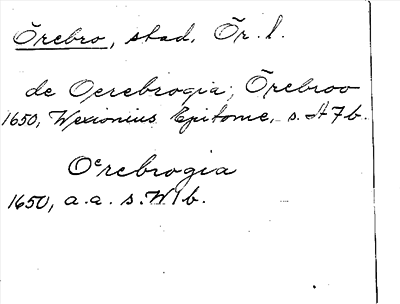 Örebro, stad. Ör. l.
de Oerebrogia; Örebroo
1650, Wexionius Epitome, s. H7b.
Oͤrebrogia
1650, a.a. s. W1b.